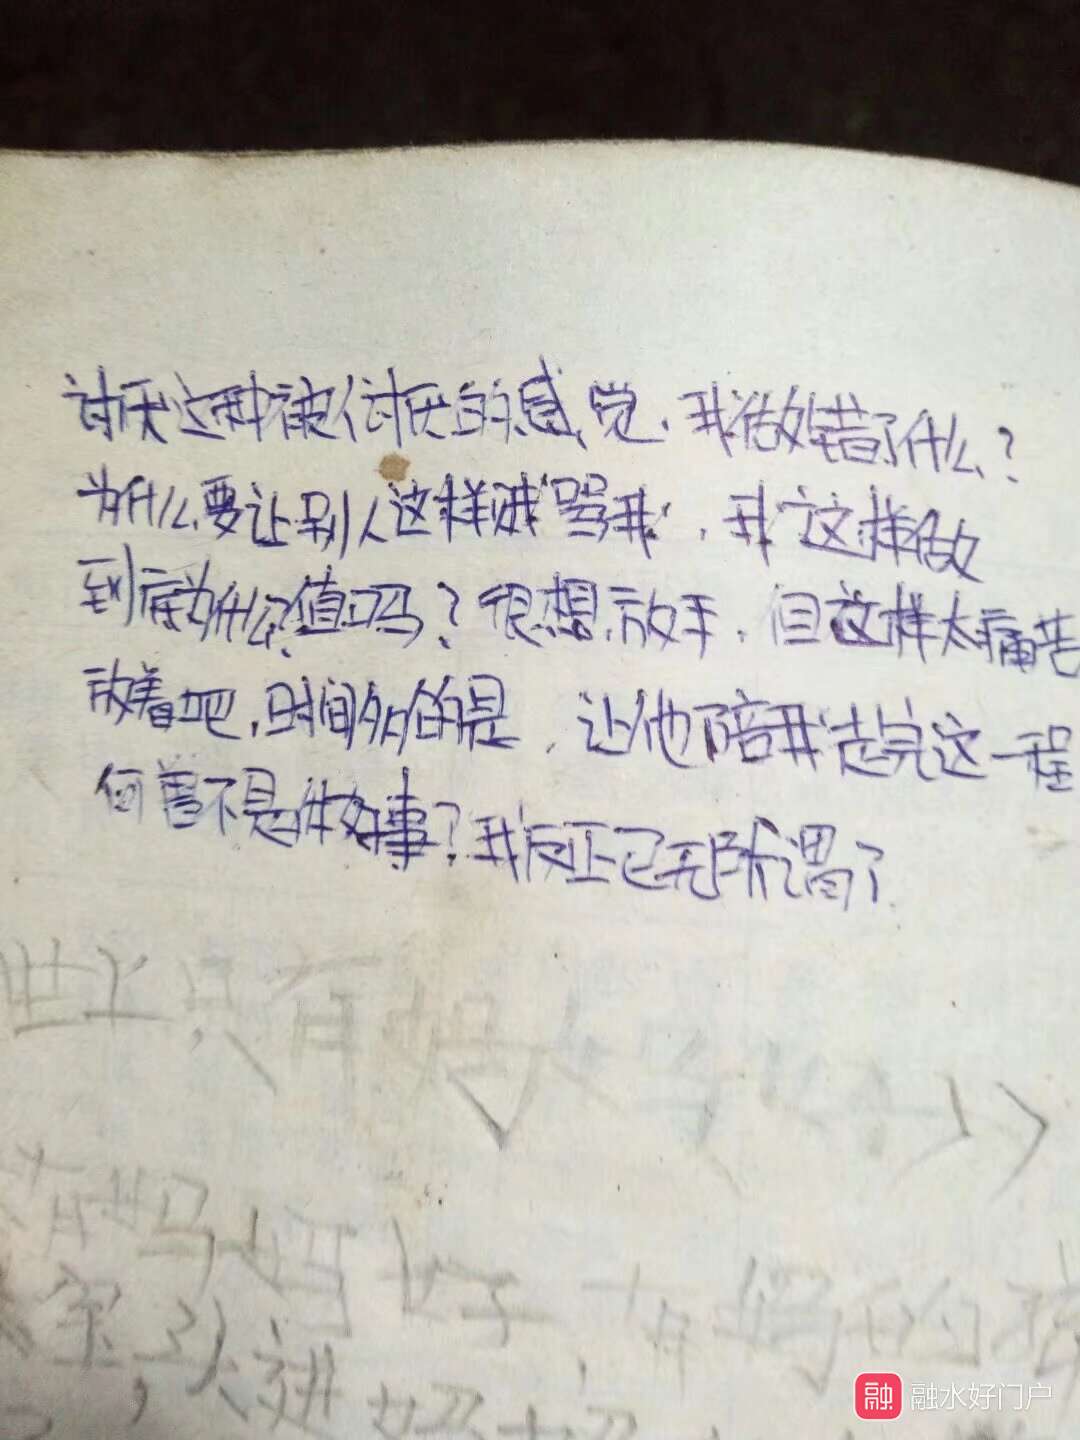 讨厌这种被人讨厌的感觉，我做错了什么？
为什么要让别人这样"骂我"，我这样做
到底为什么？值得吗？很想放手，但这样太痛苦
放着吧，时间多的是，让他陪我走完这一程
何尝不是件好事？我反正已无所谓了
世上只有妈妈好
有妈的孩
融 融水好门户